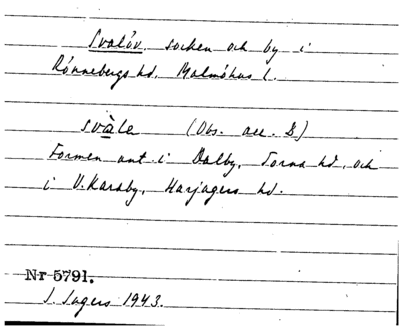 Svalöv. socken och by i
Rönnebergs hd. Malmöhus l.
svàle (Obs. acc. D)
Formen ant. i Dalby, Torna hd. och
i V. Karaby, Harjagers hd.
Nr 5791.
I. Ingers 1943.